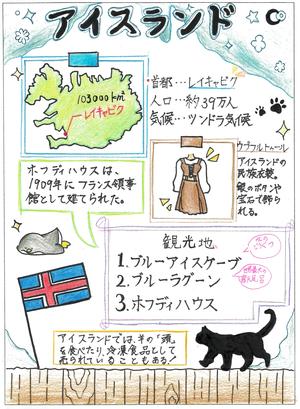 アイスランド
103000km²
レイキャビク
・首都…レイキャビク
人口…約39万人
気候…ツンドラ気候
ホフディハウスは、
1909年にフランス領事
館として建てられた。
アイスランドの
民族衣装。
銀のボタンや
宝石で飾ら
れる。
観光地
1. ブルーアイスケーブ
2. ブルーラグーン
3. ホフディハウス
アイスランドでは、羊の「頭」
を食べたり、冷凍食品として
売られていることもある!